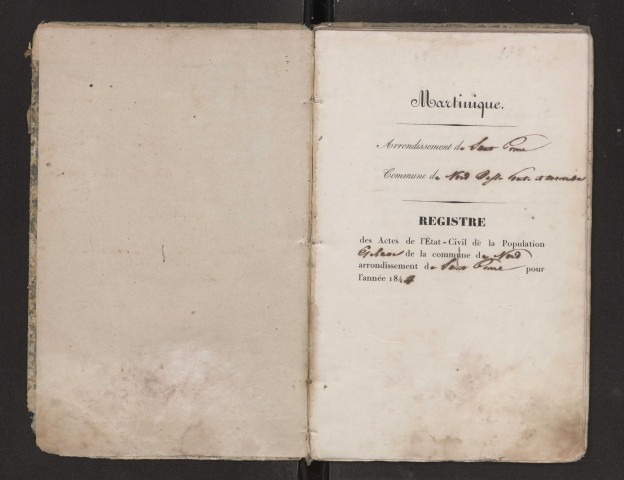 Martinique.
Arrondissement de Saint Pierre
Commune de Nord Basse
REGISTRE
des Actes de l'État-Civil de la Population
Esclave de la commune de Nord
arrondissement de Saint Pierre pour
l'année 1844